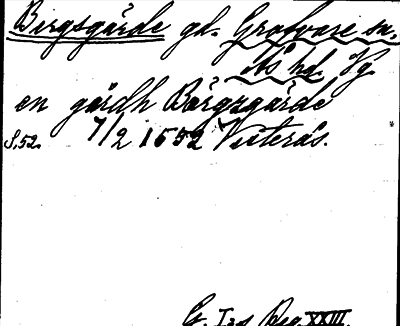 Bergsgärde gd. Grolvare sn.
Ås hd. Vg.
en gårdh Bärgsgärde
S. 52. 7/2 1552 Vesterås.
G. I:s Reg. XXIII.